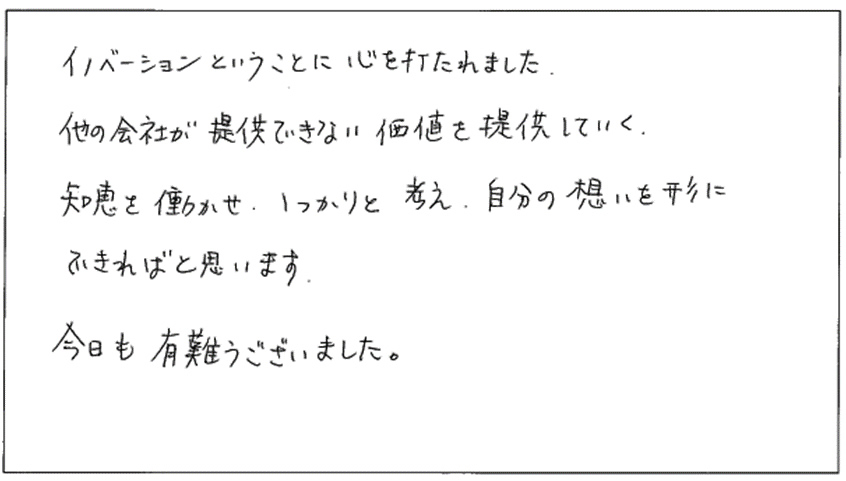 イノベーションということに心を打たれました.
他の会社が提供できない価値を提供していく.
知恵を働かせ.しっかりと考え.自分の想いを形に
できればと思います.
今日も有難うございました。